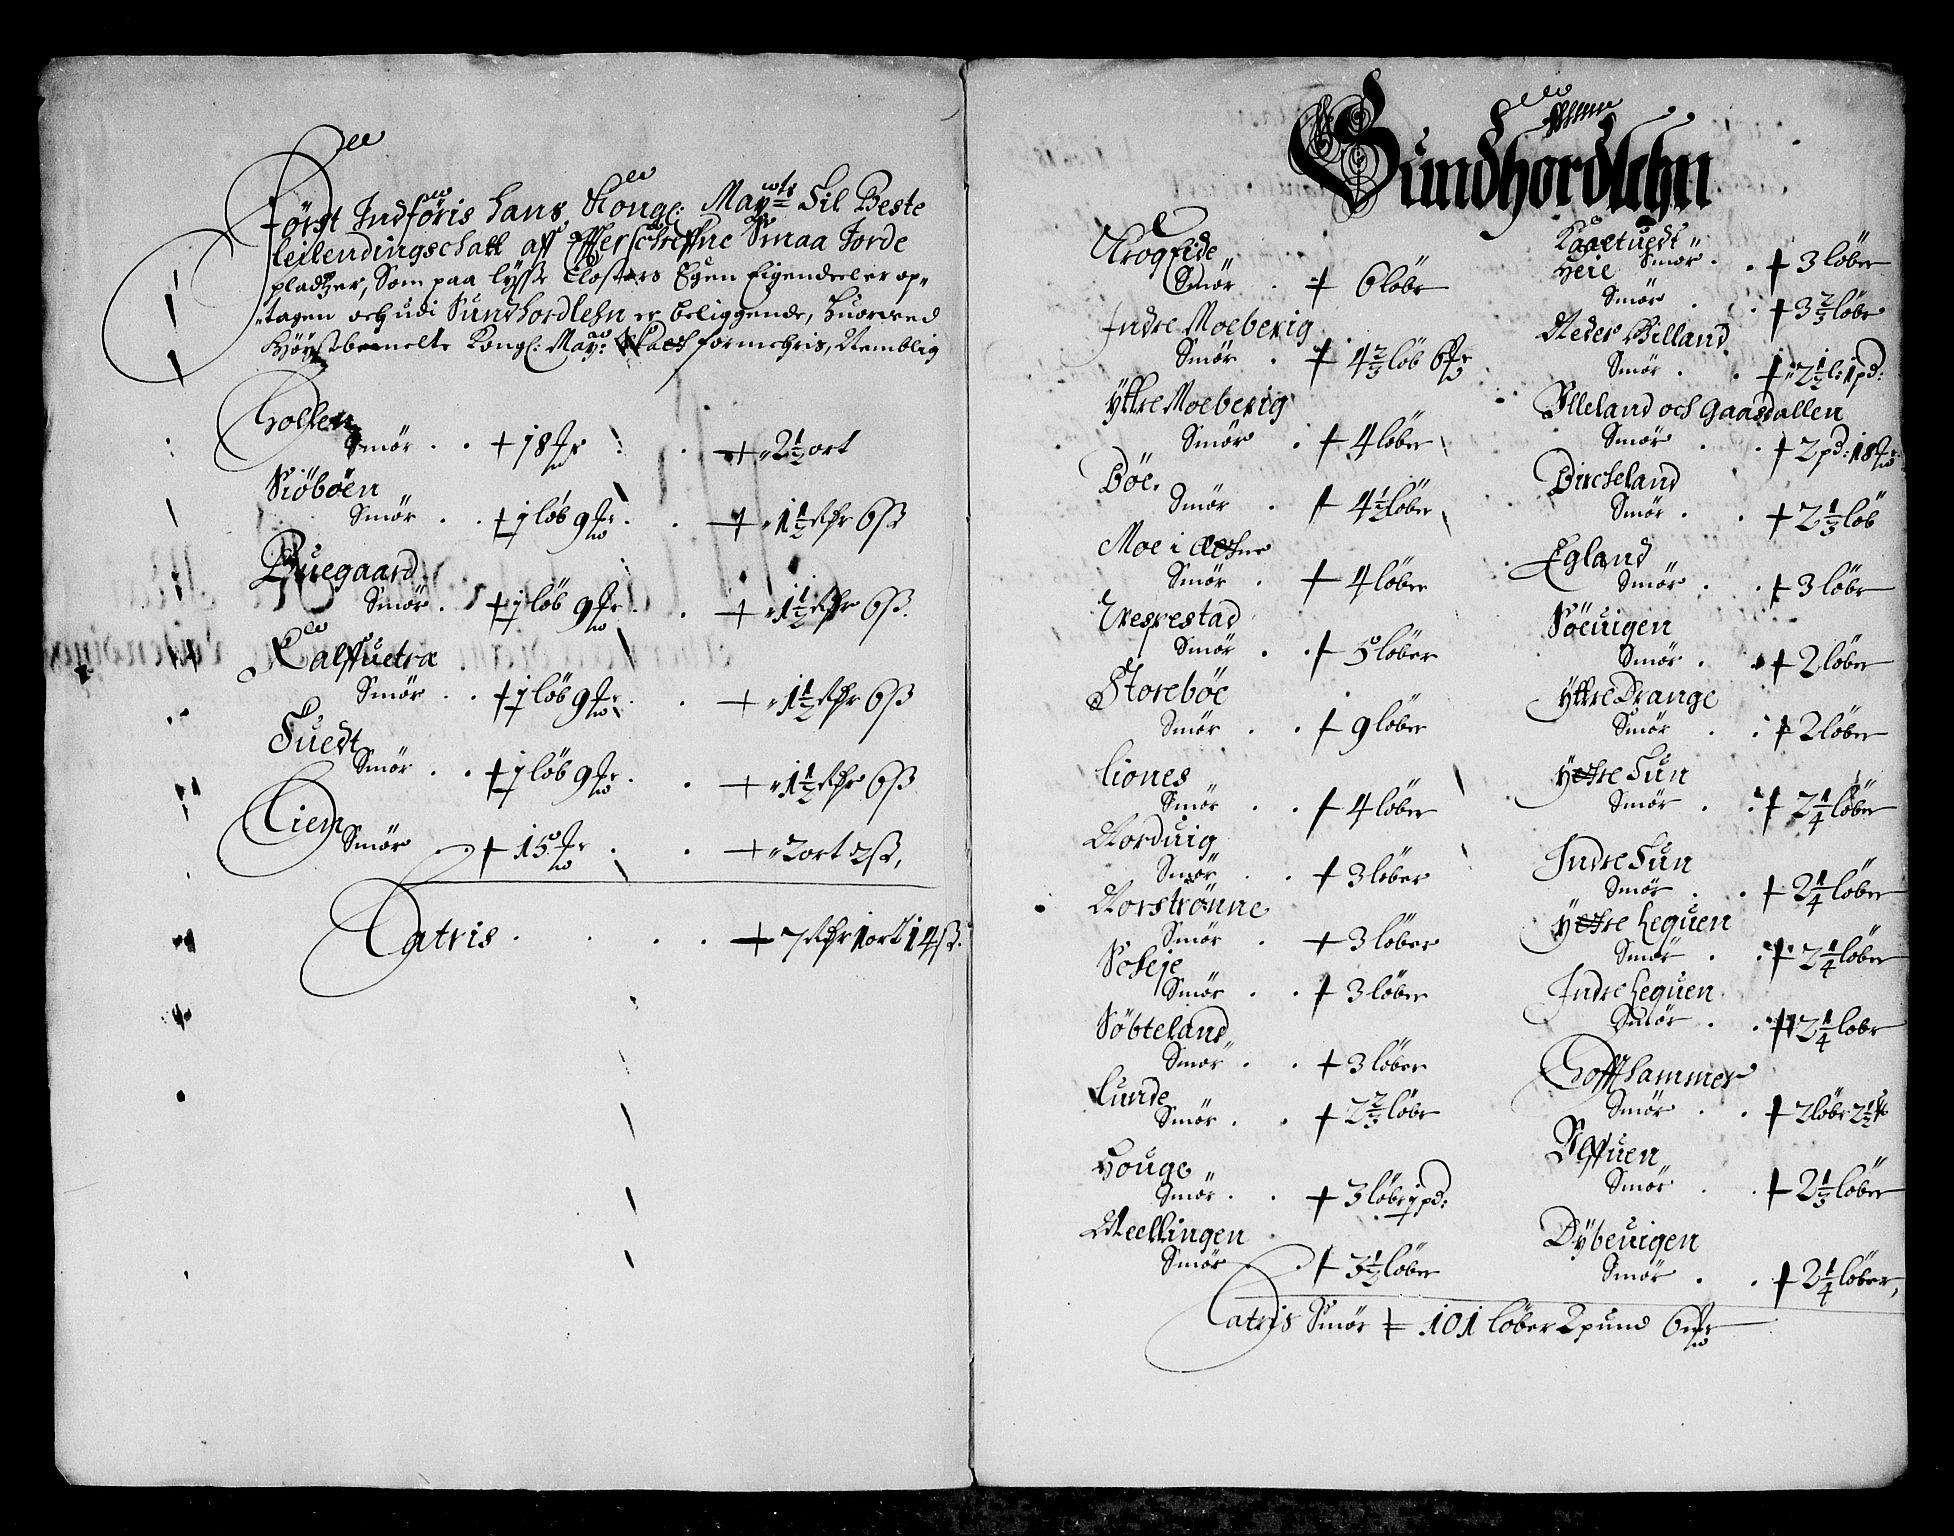 Først Indføris hans Kongl: Mayts Til Beste
leilendingschatt aff Effterschreffne Smaa Jorde
pladtzer, Som paa lysse Closters Egen Eigendeeler op-
tagen och udi Sundhordlehn er beliggende, huorved
Høystbemelte Kongl: May: formehris, Nemblig
Golten
Smør + 18 + 2½ ort
Siøbøen
Smør + 1 løb 9 + 1½ Rdr 6 ß
Buegaard
Smør + 1 løb 9 + 1½ Rdr 6 ß.
Kalffuetræ
Smør + 1 løb 9 + 1½ Rdr 6 ß
Tuedt
Smør + 1 løb 9 + 1½ Rdr 6 ß
Liem
Smør + 15 + 2 ort 2 ß,
Latris + 7 Rdr 1 ort 14 ß.
Sundhordlehn
Krogeide
Smør + 6 løbr
Indre Moeberig
Smør + 4⅔ løb 6
Yttre Moeberig
Smør + 4 løber
Bøe.
Smør + 4½ løber
Moe i
Smør + 4 løber
Vespestad
Smør + 5 løber
Storebøe
Smør + 9 løber
Liones
Smør + 4 løber
Norduig
Smør + 3 løber
Norstrønne
Smør + 3 løber
Smør + 3 løber
Søbteland
Smør + 3 løber
Lunde
Smør + 2⅔ løbr
Houge
Smør + 3 løbr 1 pd:
Mellingen
Smør + 3½ løber
Kaaetuedt
Smør + 3 løber
Heie
Smør + 3⅔ løbr
Neder Billand
Smør + 2½ l: 1 pd:
Ulleland och Gaasdallen
Smør + 2 pd: 18
Bircheland
Smør + 2⅓ løb
Egland
Smør + 3 løbr
Søeuigen
Smør + 2 løber
Yttre Drange
Smør + 2 løber
Ytre Tun
Smør + 2¼ løber
Indre Tun
Smør + 2¼ løber
Ytre Leguen
Smør + 2¼ løber
Indre Leguen
Smør + 2¼ løbr
Goffthammer
Smør + 2 løbr 2½
Smør + 2⅓ løber
Dybeuigen
Smør + 2¼ løber,
Latris Smør + 101 løber 2 pund 6